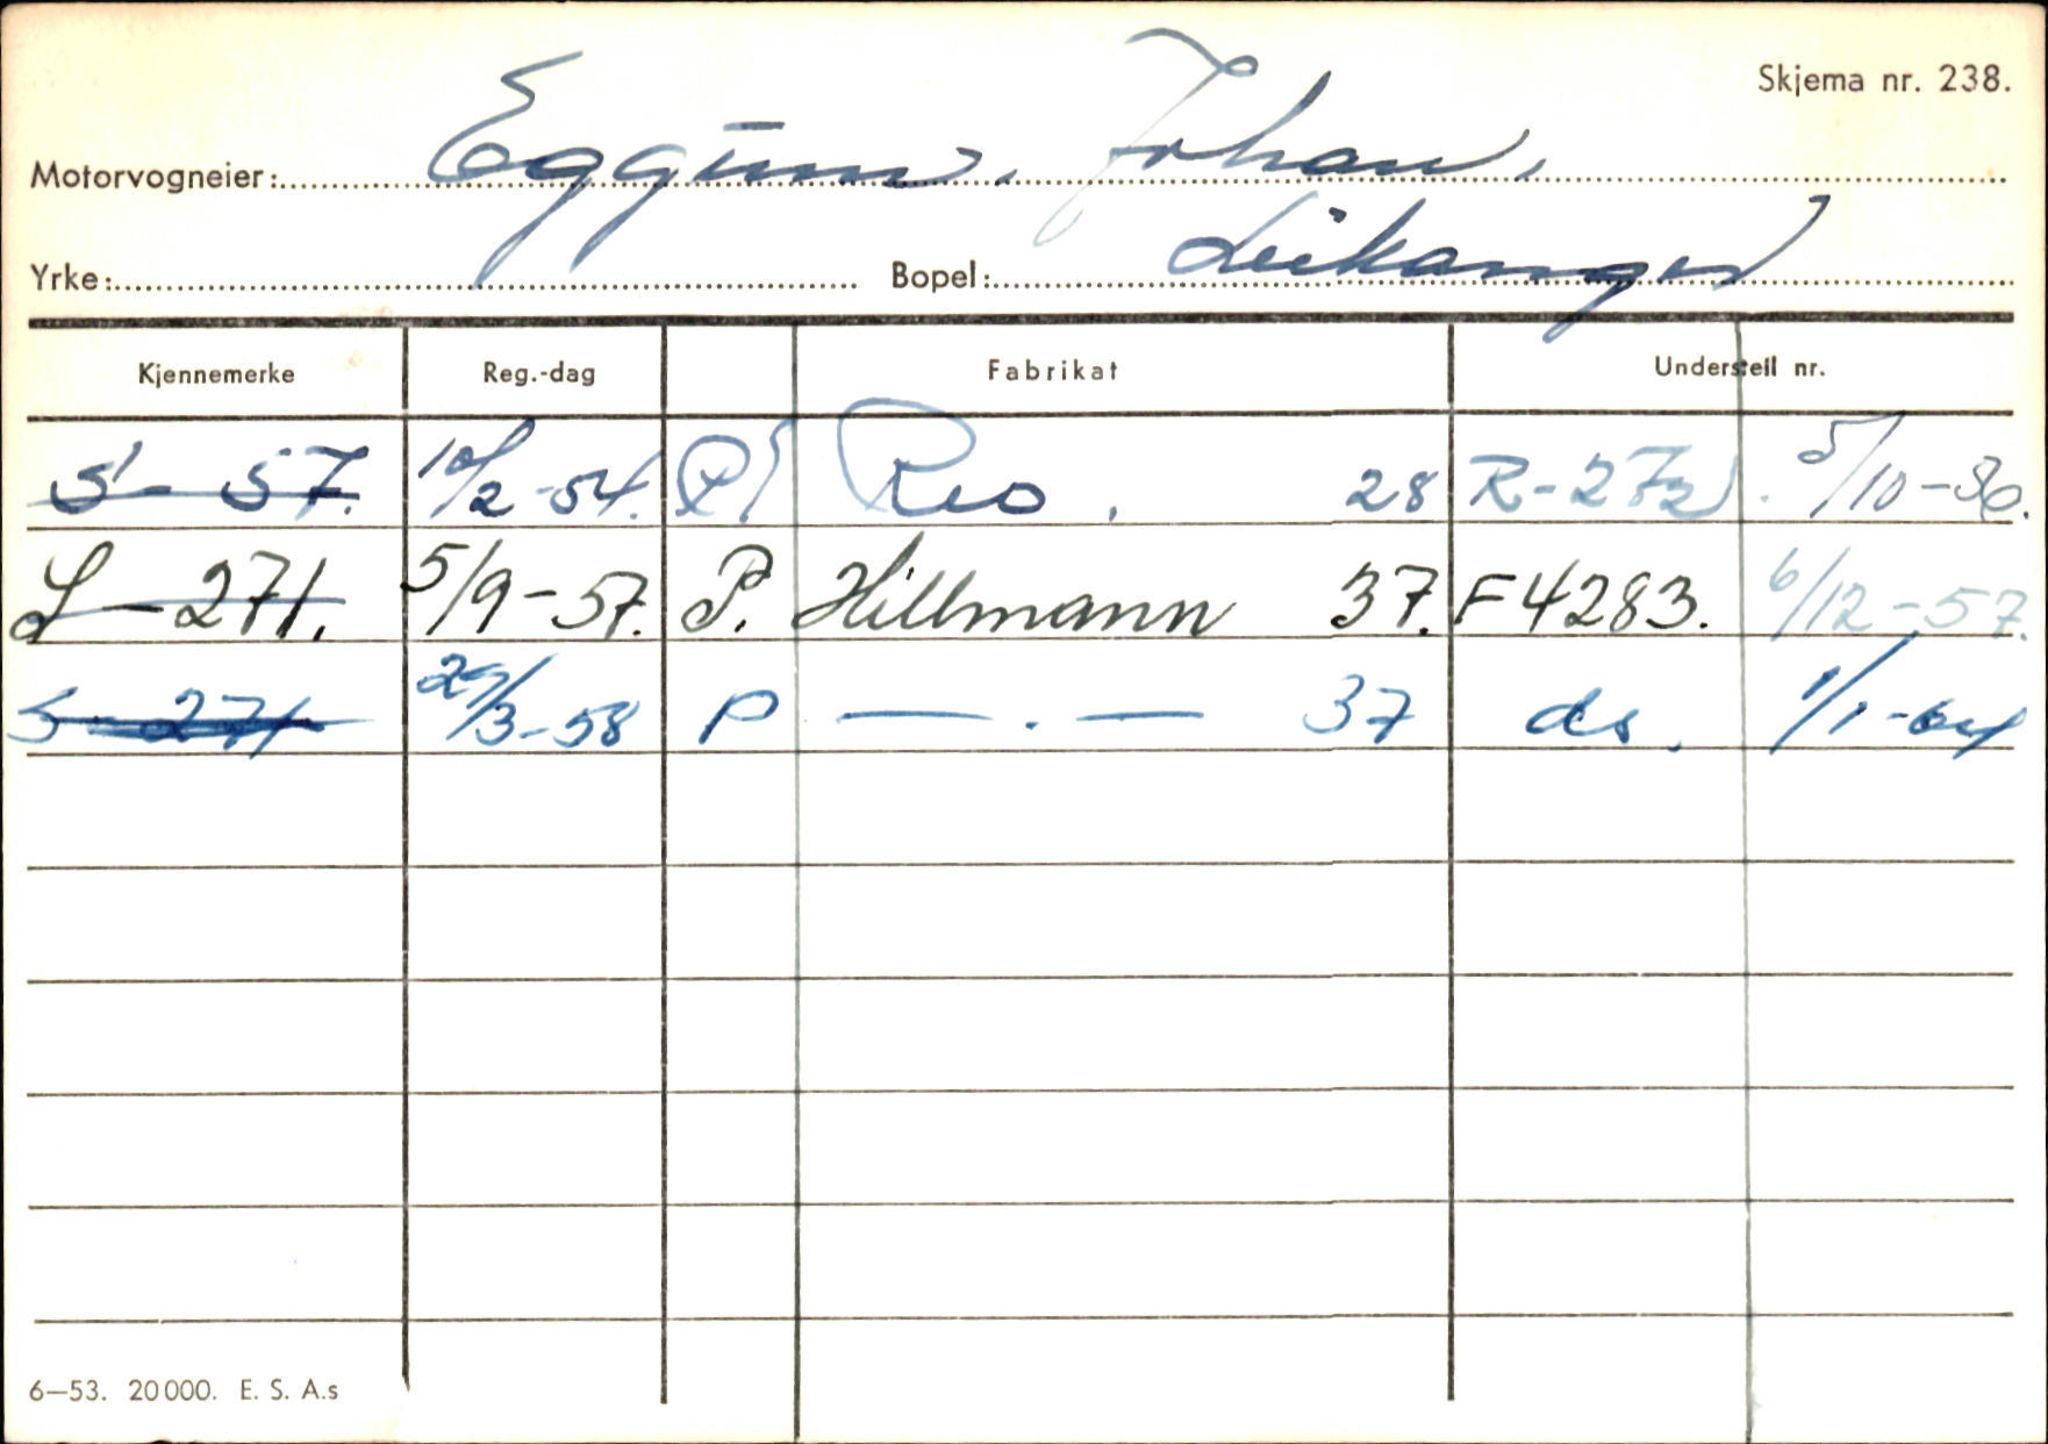 Skjema nr. 238.
Motorvogneier: Eggum, Johan,
Yrke: Bopel: Leikanger
Kjennemerke Reg.-dag Fabrikat Understell nr.
S - 57. 10/2-54. P. Reo. 28 R-272. 5/10-56.
S - 271. 5/9-57. P. Hillmann 37. F4283. 6/12-57.
S - 271 29/3-58 P — . — 37 ds. 1/1-64
6—53. 20 000. E. S. A.s